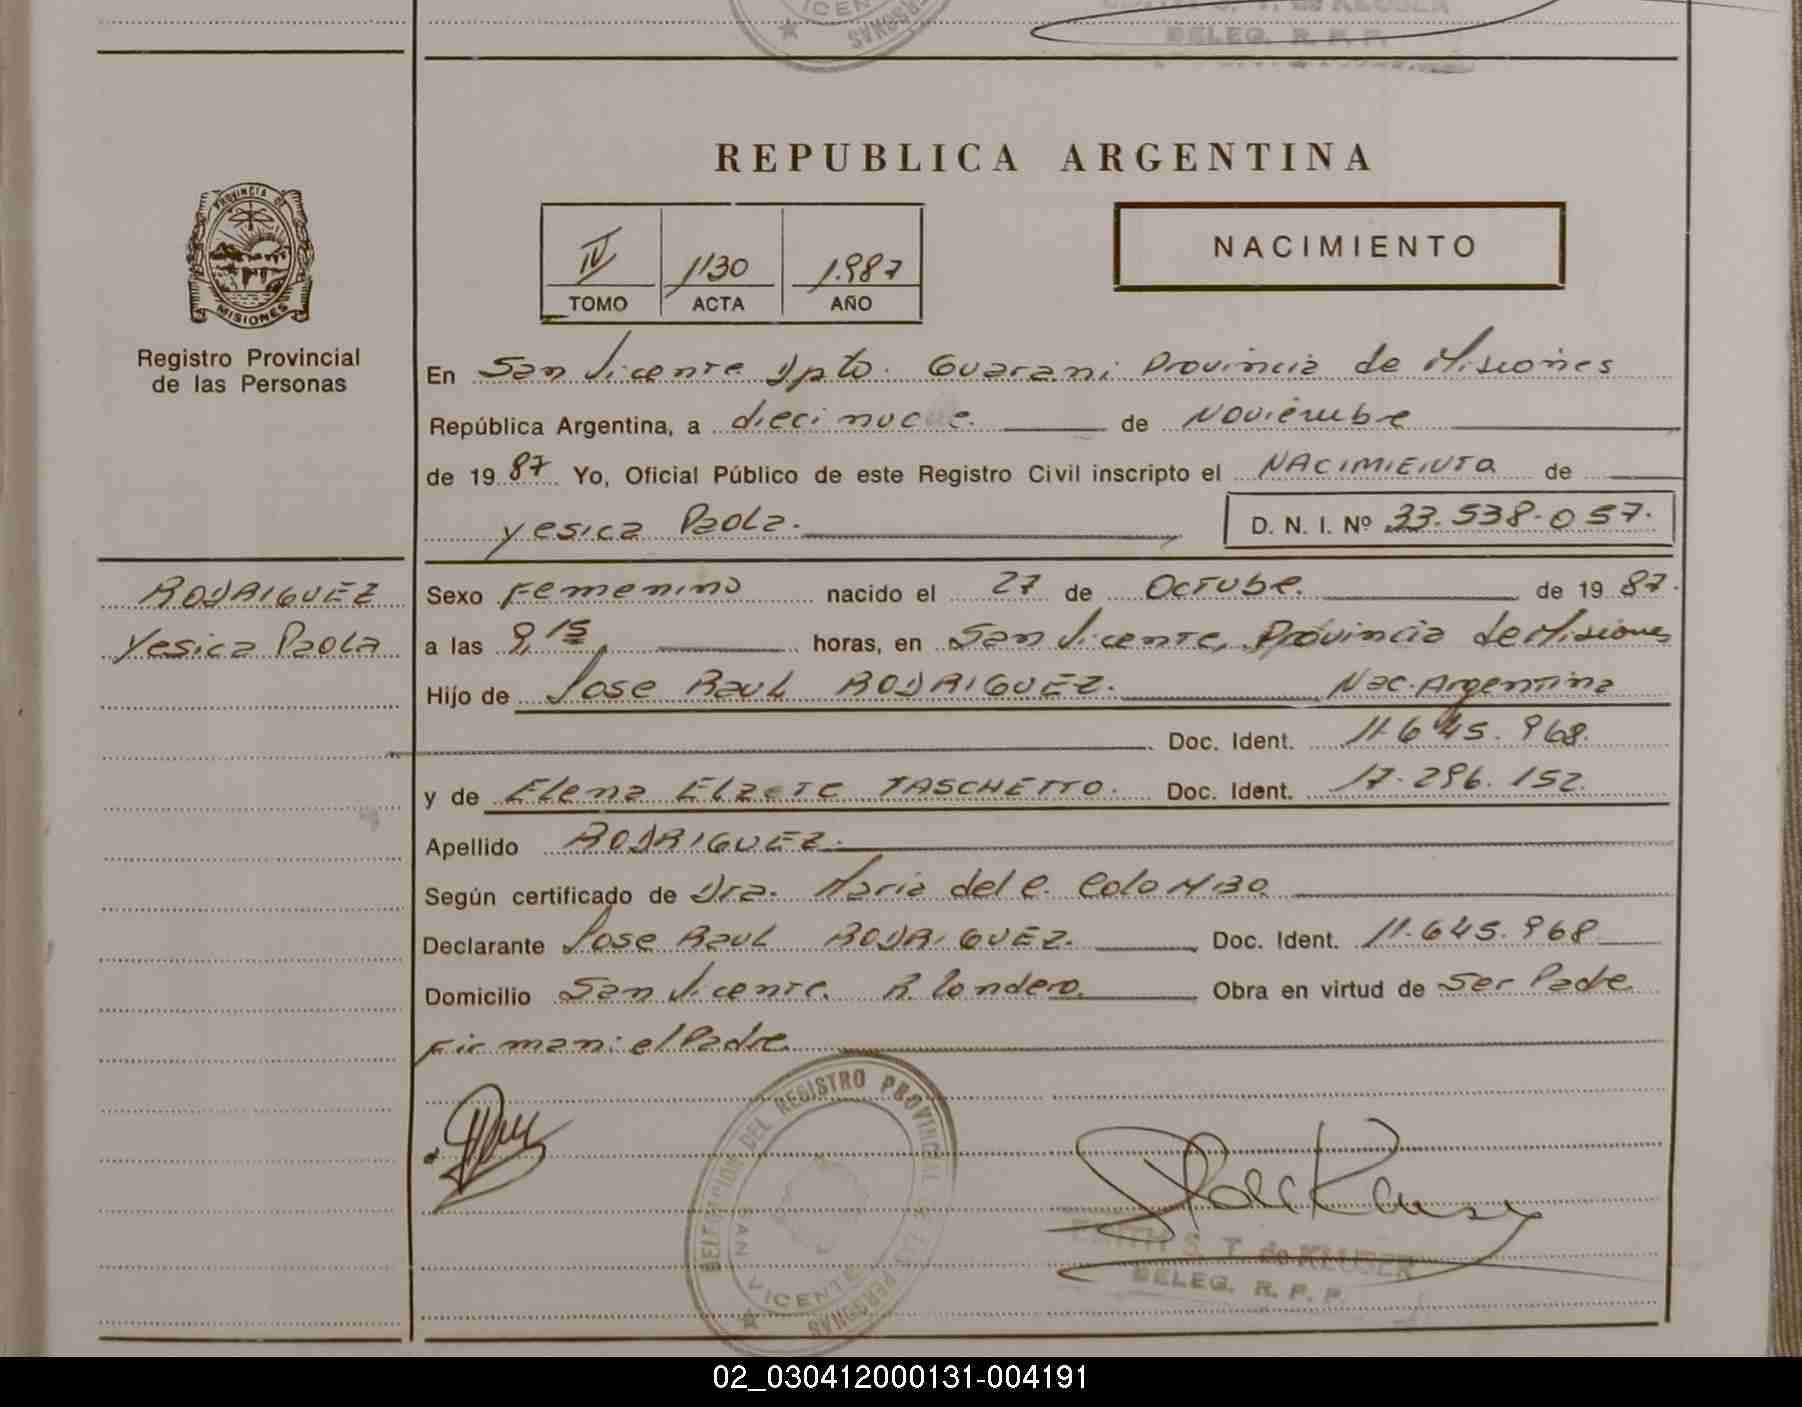 VICENTE
PERSONAS
DELEG. R. P. P.
REPUBLICA ARGENTINA
PROVINCIA DE
MISIONES
Registro Provincial
de las Personas
IV 1130 1.987
TOMO ACTA AÑO
NACIMIENTO
En San Vicente Dpto. Guarani Provincia de Misiones
República Argentina, a diecinueve de Noviembre
de 1987 Yo, Oficial Público de este Registro Civil inscripto el NACIMIENTO de
Yesica Paola. D. N. I. Nº 33.538.057.
RODRIGUEZ
Yesica Paola
Sexo Femenino nacido el 27 de Octube. de 1987.
a las 9,15 horas, en San Vicente, Provincia de Misiones
Hijo de Jose Raul RODRIGUEZ. Nac. Argentina
Doc. Ident. 11.645.968.
y de Elena Elzete TASCHETTO. Doc. Ident. 17.296.152.
Apellido RODRIGUEZ.
Según certificado de Dra. Maria del C. Colombo
Declarante Jose Raul RODRIGUEZ. Doc. Ident. 11.645.968
Domicilio San Vicente. R. Londero. Obra en virtud de Ser Padre
Firman: el Padre
DELEGACION DEL REGISTRO PROVINCIAL DE LAS PERSONAS
SAN VICENTE
EDITH S. T. de KLUSER
DELEG. R. P. P.
02_030412000131-004191